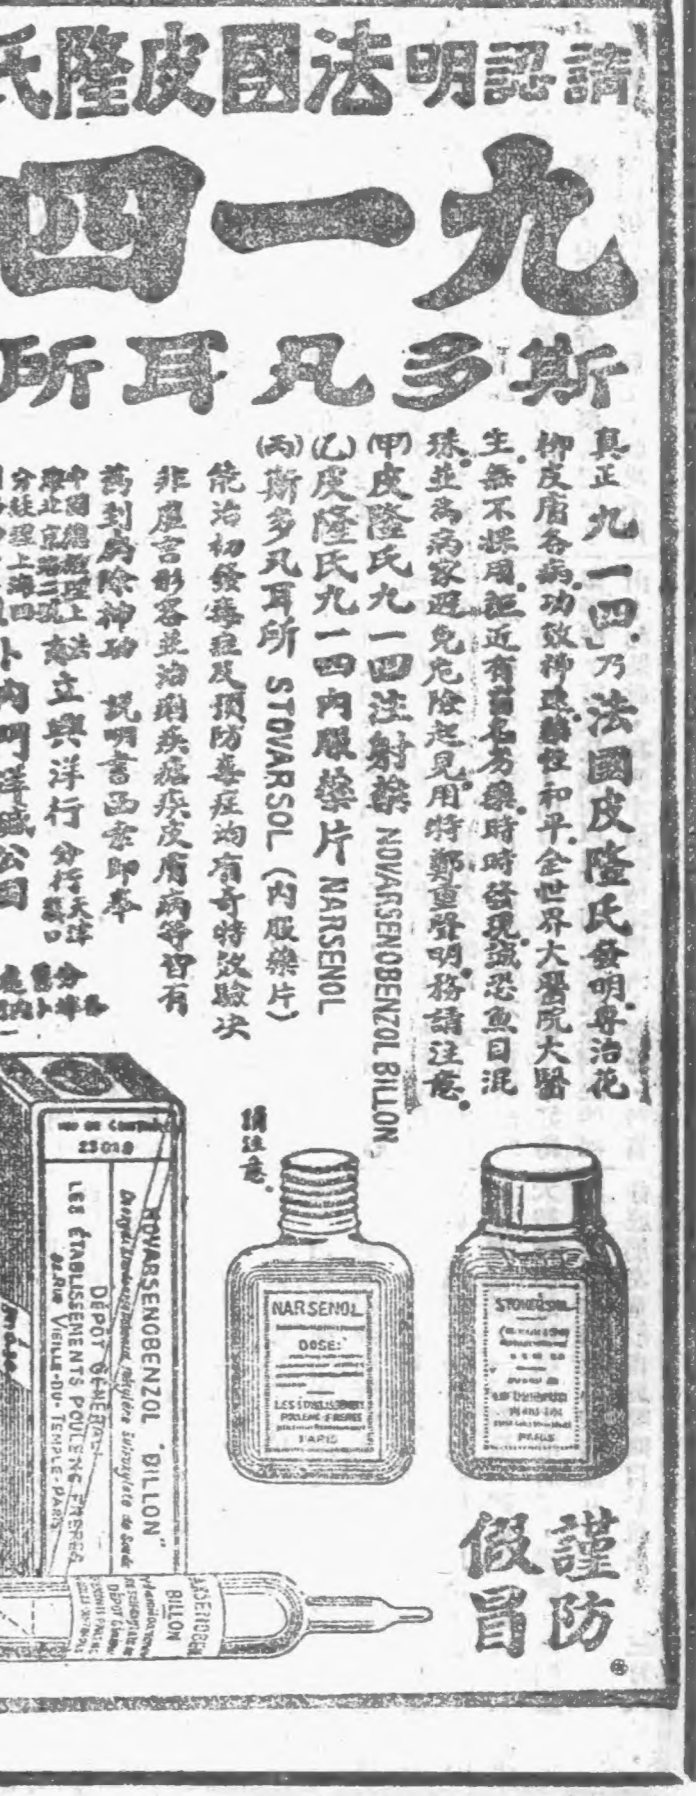 請認明法國皮隆氏
九一四
斯多凡耳所
真正「九一四」乃法國皮隆氏發明專治花
柳皮膚各病功效神速藥性和平全世界大醫院大醫
生無不採用誑近有冒名劣藥時時發現誠恐魚目混
珠並為病家避免危險起見用特鄭重聲明務請注意
(甲)皮隆氏九一四注射藥 NOVARSENOBENZOL BILLON
(乙)皮隆氏九一四內服藥片 NARSENOL
(丙)斯多凡耳所 STOVARSOL (內服藥片)
能治初發毒症及預防毒症均有奇特效驗决
非虛言形容並治痢疾瘧疾皮膚病等皆有
藥到病除神功 說明書函索即奉
中國總經理上
海北京路二號
法商立興洋行
分行天津
漢口
分經理上海四
請注意
NARSENOL
DOSE:
LES ETABLISSEMENTS
POULENC FRERES
PARIS
PARIS
23019
NOVARSENOBENZOL "BILLON"
DÉPOT GÉNÉRAL
LES ÉTABLISSEMENTS POULENC FRÈRES
RUE VIEILLE-DU-TEMPLE-PARIS
BILLON
謹防
假冒